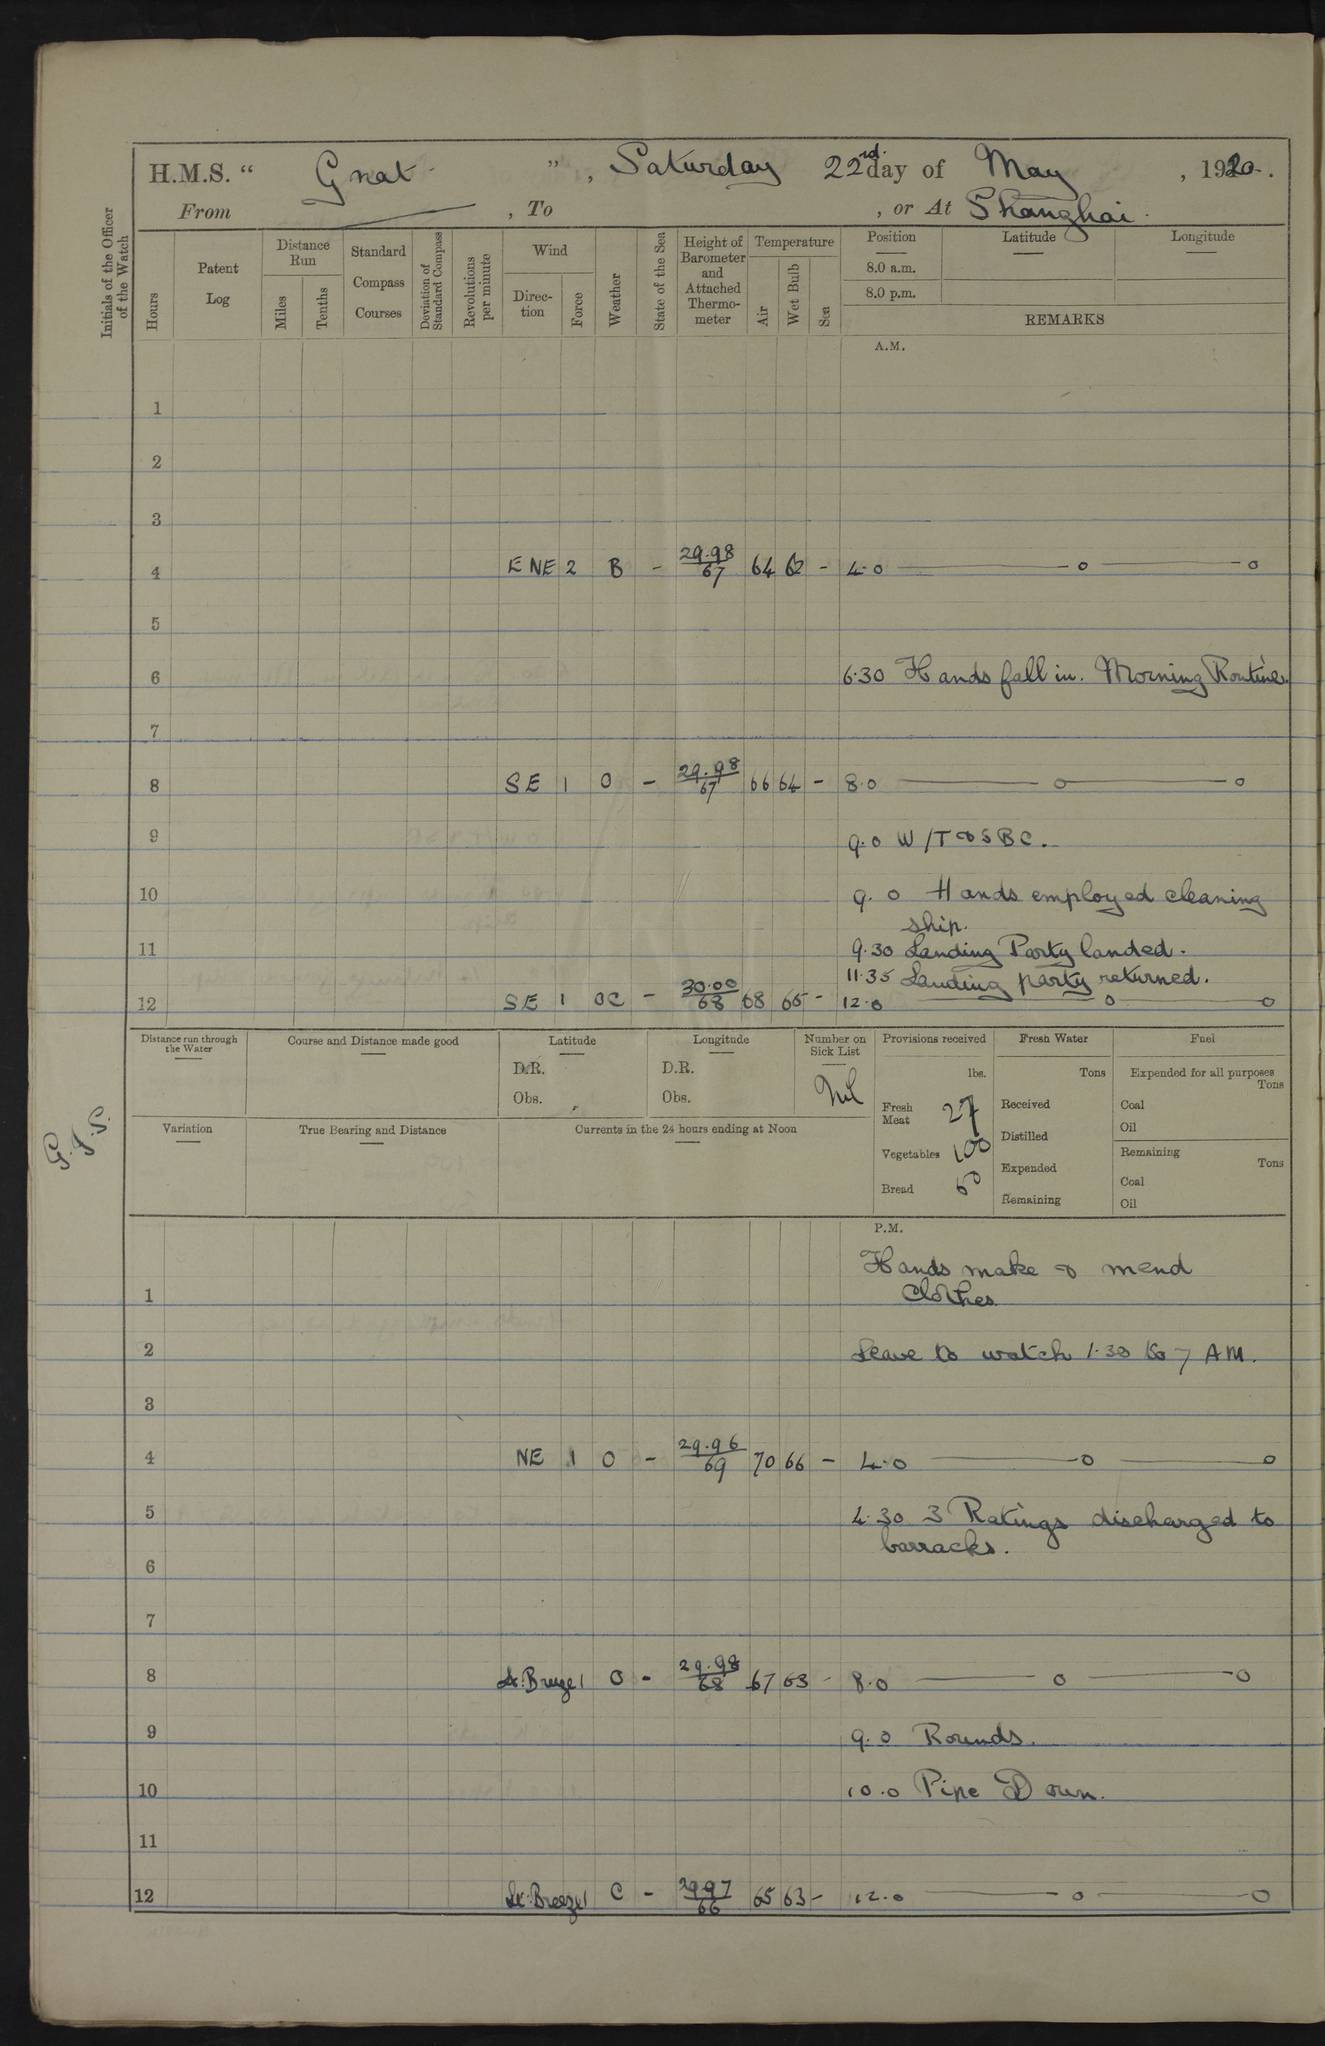 H.M.S. “ Gnat ”, Saturday 22rd day of May, 1920.
From , To , or At Shanghai.
Initials of the Officer of the Watch
Hours
Patent Log
Distance Run
Miles
Tenths
Standard Compass Courses
Deviation of Standard Compass
Revolutions per minute
Wind
Direction
Force
Weather
State of the Sea
Height of Barometer and Attached Thermometer
Temperature
Air
Wet Bulb
Sea
Position Latitude Longitude
8.0 a.m.
8.0 p.m.
REMARKS
A.M.
1
2
3
4 ENE 2 B - 29.98/67 64 62 - 4.0 —o—o
5
6 6.30 Hands fall in. Morning Routine.
7
8 SE 1 O - 29.98/67 66 64 - 8.0 —o—o
9 9.0 W/T & S B C.
10 9.0 Hands employed cleaning
ship.
11 9.30 Landing Party landed.
11.35 Landing party returned.
12 SE 1 OC - 30.00/68 68 65 - 12.0 —o—o
Distance run through the Water
Course and Distance made good
Latitude
D.R.
Obs.
Longitude
D.R.
Obs.
Number on Sick List
Nil
Provisions received
lbs.
Fresh Meat 27
Vegetables 100
Bread 50
Fresh Water
Tons
Received
Distilled
Expended
Remaining
Fuel
Expended for all purposes
Tons
Coal
Oil
Remaining
Tons
Coal
Oil
Variation
True Bearing and Distance
Currents in the 24 hours ending at Noon
G.J.S.
P.M.
Hands make & mend
1 Clothes
2 Leave to watch 1.30 to 7 AM.
3
4 NE 1 O - 29.96/69 70 66 - 4.0 —o—o
5 4.30 3 Ratings discharged to
barracks.
6
7
8 Lt. Breeze 1 O - 29.98/68 67 63 - 8.0 —o—o
9 9.0 Rounds.
10 10.0 Pipe Down.
11
12 Lt. Breeze 1 C - 29.97/66 65 63 - 12.0 —o—o